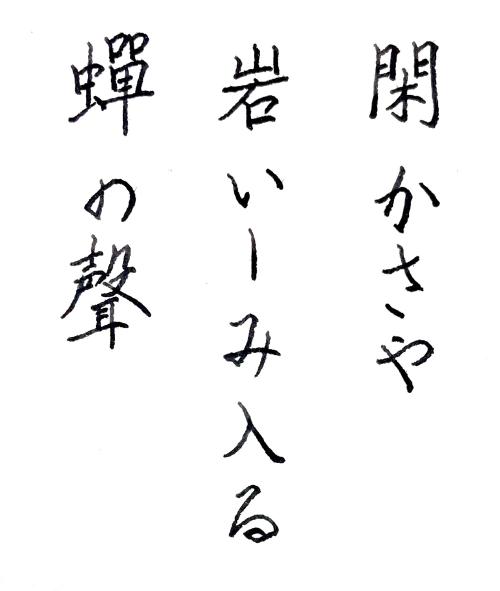 閑かさや
岩にしみ入る
蟬の聲